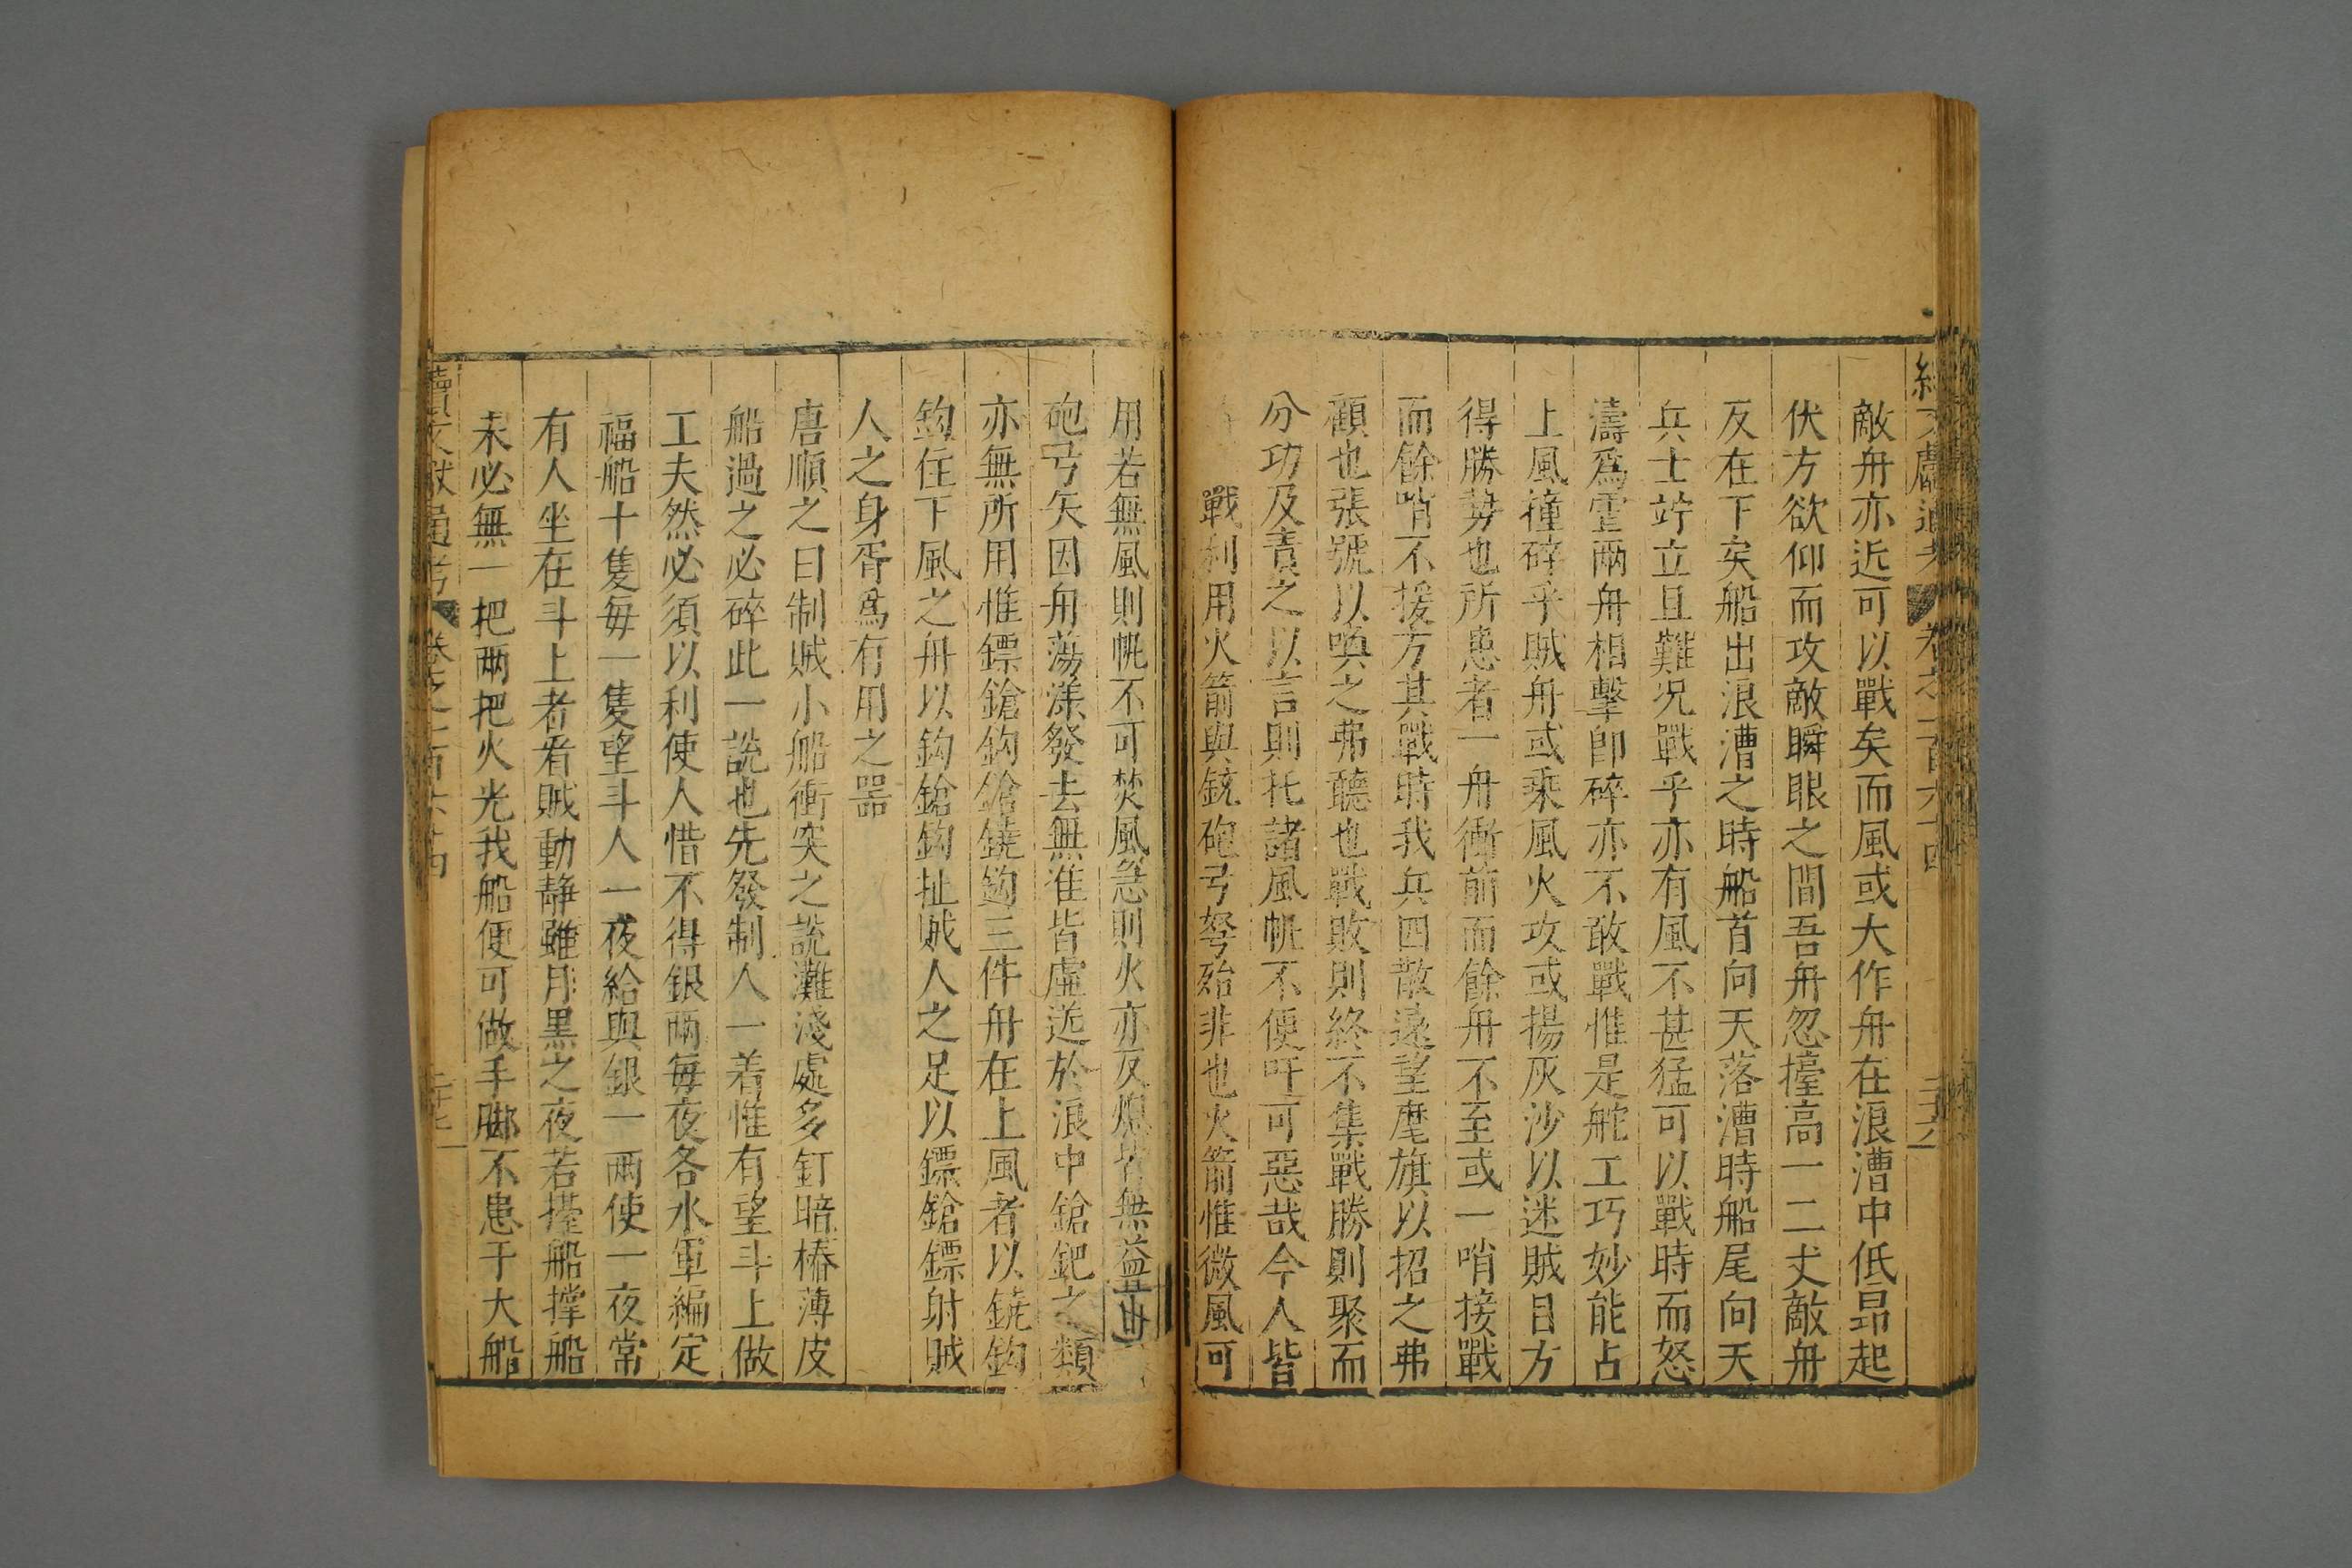 敵舟亦近可以戰矣而風或大作舟在浪漕中低昻起
伏方欲仰而攻敵瞬眼之間吾舟忽擡高一二丈敵舟
反在下矣船出浪漕之時船首向天落漕時船尾向天
兵士竚立且難况戰乎亦有風不甚猛可以戰時而怒
濤爲䨓兩舟相擊卽碎亦不敢戰惟是舵工巧妙能占
上風撞碎乎賊舟或乘風火攻或揚灰沙以迷賊目方
得勝势也所患者一舟衝前而餘舟不至或一哨接戰
而餘哨不援方其戰時我兵四散遠望麾旗以招之弗
顧也張號以喚之弗聽也戰敗則終不集戰勝則聚而
分功及責之以言則托諸風帆不便吁可惡哉今人皆
戰利用火箭與銃砲弓弩殆非也火箭惟微風可
用若無風則帆不可焚風急則火亦反無益也
砲弓矢因舟蕩漾發去無准皆虛送於浪中鎗鈀之類
亦無所用惟鏢鎗鈎鎗鐃鈎三件舟在上風者以鐃鈎
鈎住下風之舟以鈎鎗鈎扯賊人之足以鏢鎗鏢射賊
人之身胥爲有用之器
唐順之曰制賊小船衝突之說灘淺處多釘暗樁薄皮
船過之必碎此一說也先發制人一着惟有望斗上做
工夫然必須以利使人惜不得銀兩每夜各水軍編定
福船十隻每一隻望斗人一夜給與銀一兩使一夜常
有人坐在斗上者看賊動静雖月黒之夜若擡船撑船
未必無一把兩把火光我船便可做手脚不患于大船